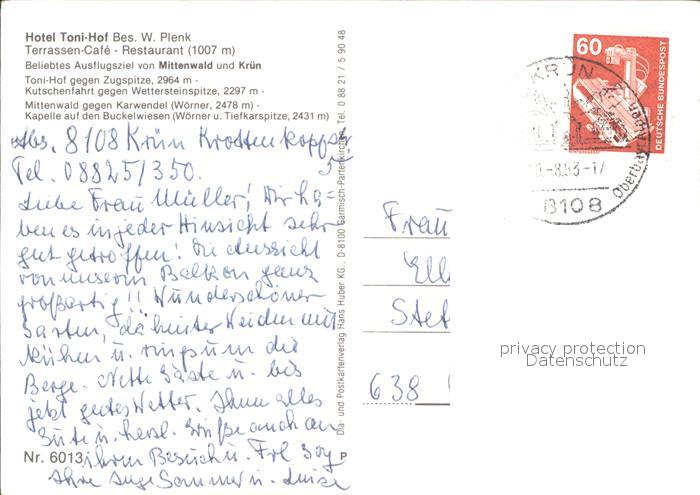 Hotel Toni-Hof Bes. W. Plenk
Terrassen-Café - Restaurant (1007 m)
Beliebtes Ausflugsziel von Mittenwald und Krün
Toni-Hof gegen Zugspitze, 2964 m ·
Kutschenfahrt gegen Wettersteinspitze, 2297 m ·
Mittenwald gegen Karwendel (Wörner, 2478 m) ·
Kapelle auf den Buckelwiesen (Wörner u. Tiefkarspitze, 2431 m)
Abs. 8108 Krün Krottenkopfstr
Tel. 08825/350.
Liebe Frau Müller! Wir ha=
ben es in jeder Hinsicht sehr
gut getroffen! Die Aussicht
von unserem Balkon ganz
großartig!! Wunderschöner
Garten, dahinter Weiden mit
Kühen u. ringsum die
Berge. Nette Gäste u. bis
jetzt gutes Wetter. Ihnen alles
Gute u. herzl. Grüße auch an
Nr. 6013 ihren Besuch u. Frl
Ihre Inge Sommer u. Luise
Dia- und Postkartenverlag Hans Huber KG., D-8100 Garmisch-Partenkirchen, Tel. 0 88 21 / 5 90 48
P
Frau
Ell
Stet
638
60
DEUTSCHE BUNDESPOST
KRÜN
-8.83-17
8108
privacy protection
Datenschutz